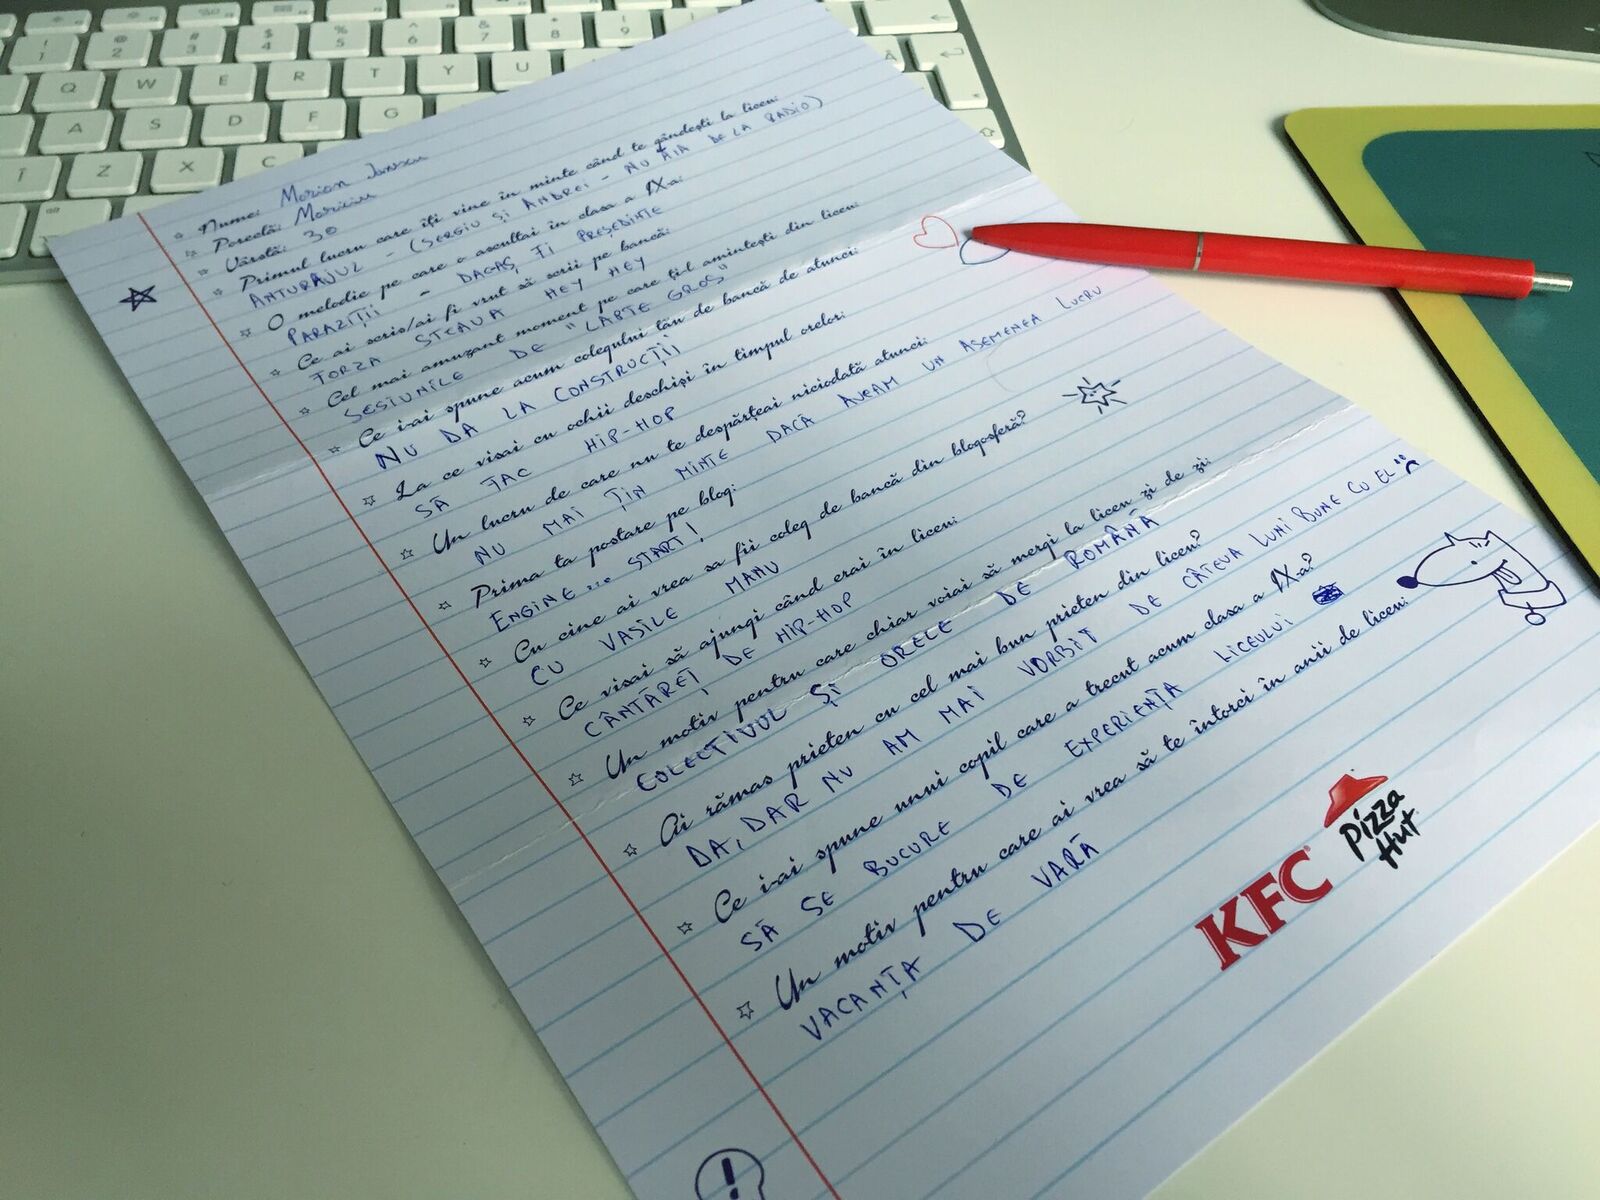 Nume: Marian Ionescu
Poreclă: Mariciu
Vârstă: 30
Primul lucru care îți vine în minte când te gândești la liceu:
ANTURAJUL - (SERGIU ȘI ANDREI - NU ĂIA DE LA RADIO)
O melodie pe care o ascultai în clasa a IX-a:
PARAZIȚII - DACAȘ FI PREȘEDINTE
Ce ai scris/ai fi vrut să scrii pe bancă:
FORZA STEAUA HEY HEY
Cel mai amuzant moment pe care ți-l amintești din liceu:
SESIUNILE DE "LABTE GROS"
Ce i-ai spune acum colegului tău de bancă de atunci:
NU DA LA CONSTRUCȚII
La ce visai cu ochii deschiși în timpul orelor:
SĂ FAC HIP-HOP
Un lucru de care nu te despărțeai niciodată atunci:
NU MAI ȚIN MINTE DACĂ AVEAM UN ASEMENEA LUCRU
Prima ta postare pe blog:
ENGINE... START!
Cu cine ai vrea sa fii coleg de bancă din blogosferă?
CU VASILE MANU
Ce visai să ajungi când erai în liceu:
CÂNTĂREȚ DE HIP-HOP
Un motiv pentru care chiar voiai să mergi la liceu zi de zi:
COLECTIVUL ȘI ORELE DE ROMÂNĂ
Ai rămas prieten cu cel mai bun prieten din liceu?
DA, DAR NU AM MAI VORBIT DE CÂTEVA LUNI BUNE CU EL :(
Ce i-ai spune unui copil care a trecut acum clasa a IX-a?
SĂ SE BUCURE DE EXPERIENȚA LICEULUI
Un motiv pentru care ai vrea să te întorci în anii de liceu:
VACANȚA DE VARĂ
KFC
Pizza Hut
!
@ 2
# 3
$ 4
% 5
6
& 7
8
9
Q W E R T Y U
A S D F G
Î Z X C
Â